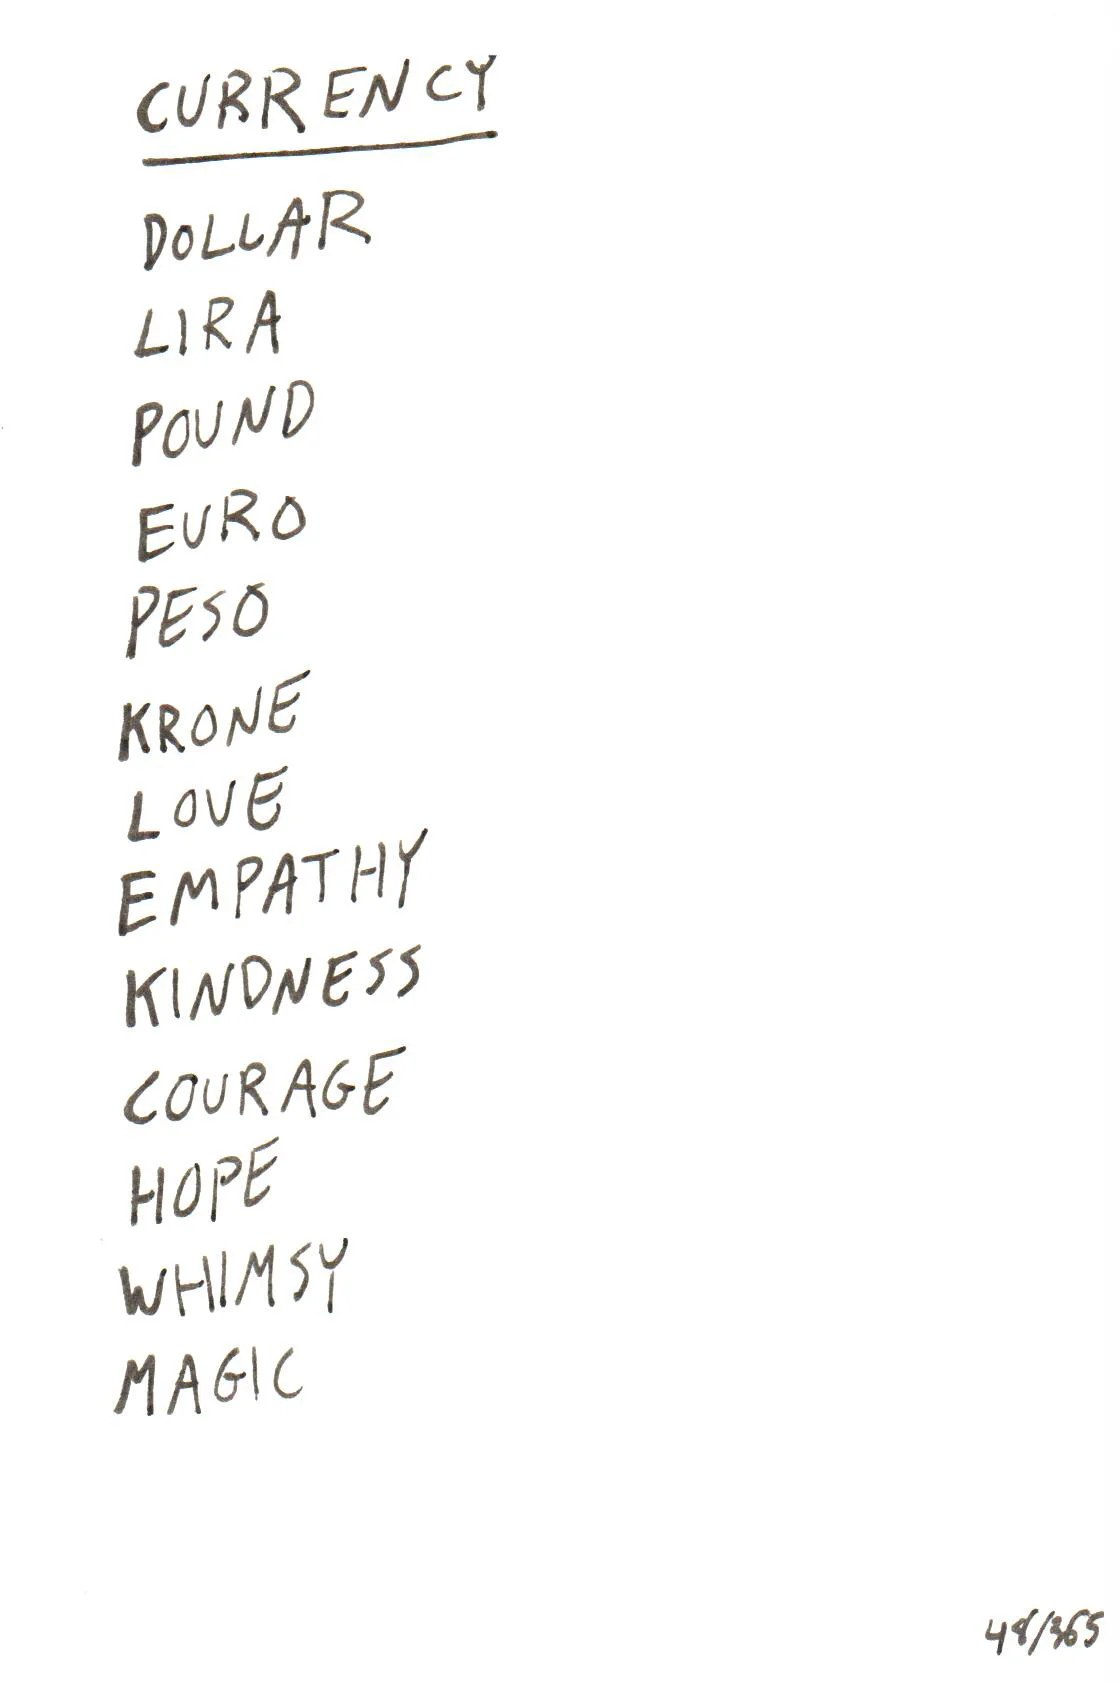 CURRENCY
DOLLAR
LIRA
POUND
EURO
PESO
KRONE
LOVE
EMPATHY
KINDNESS
COURAGE
HOPE
WHIMSY
MAGIC
48/365